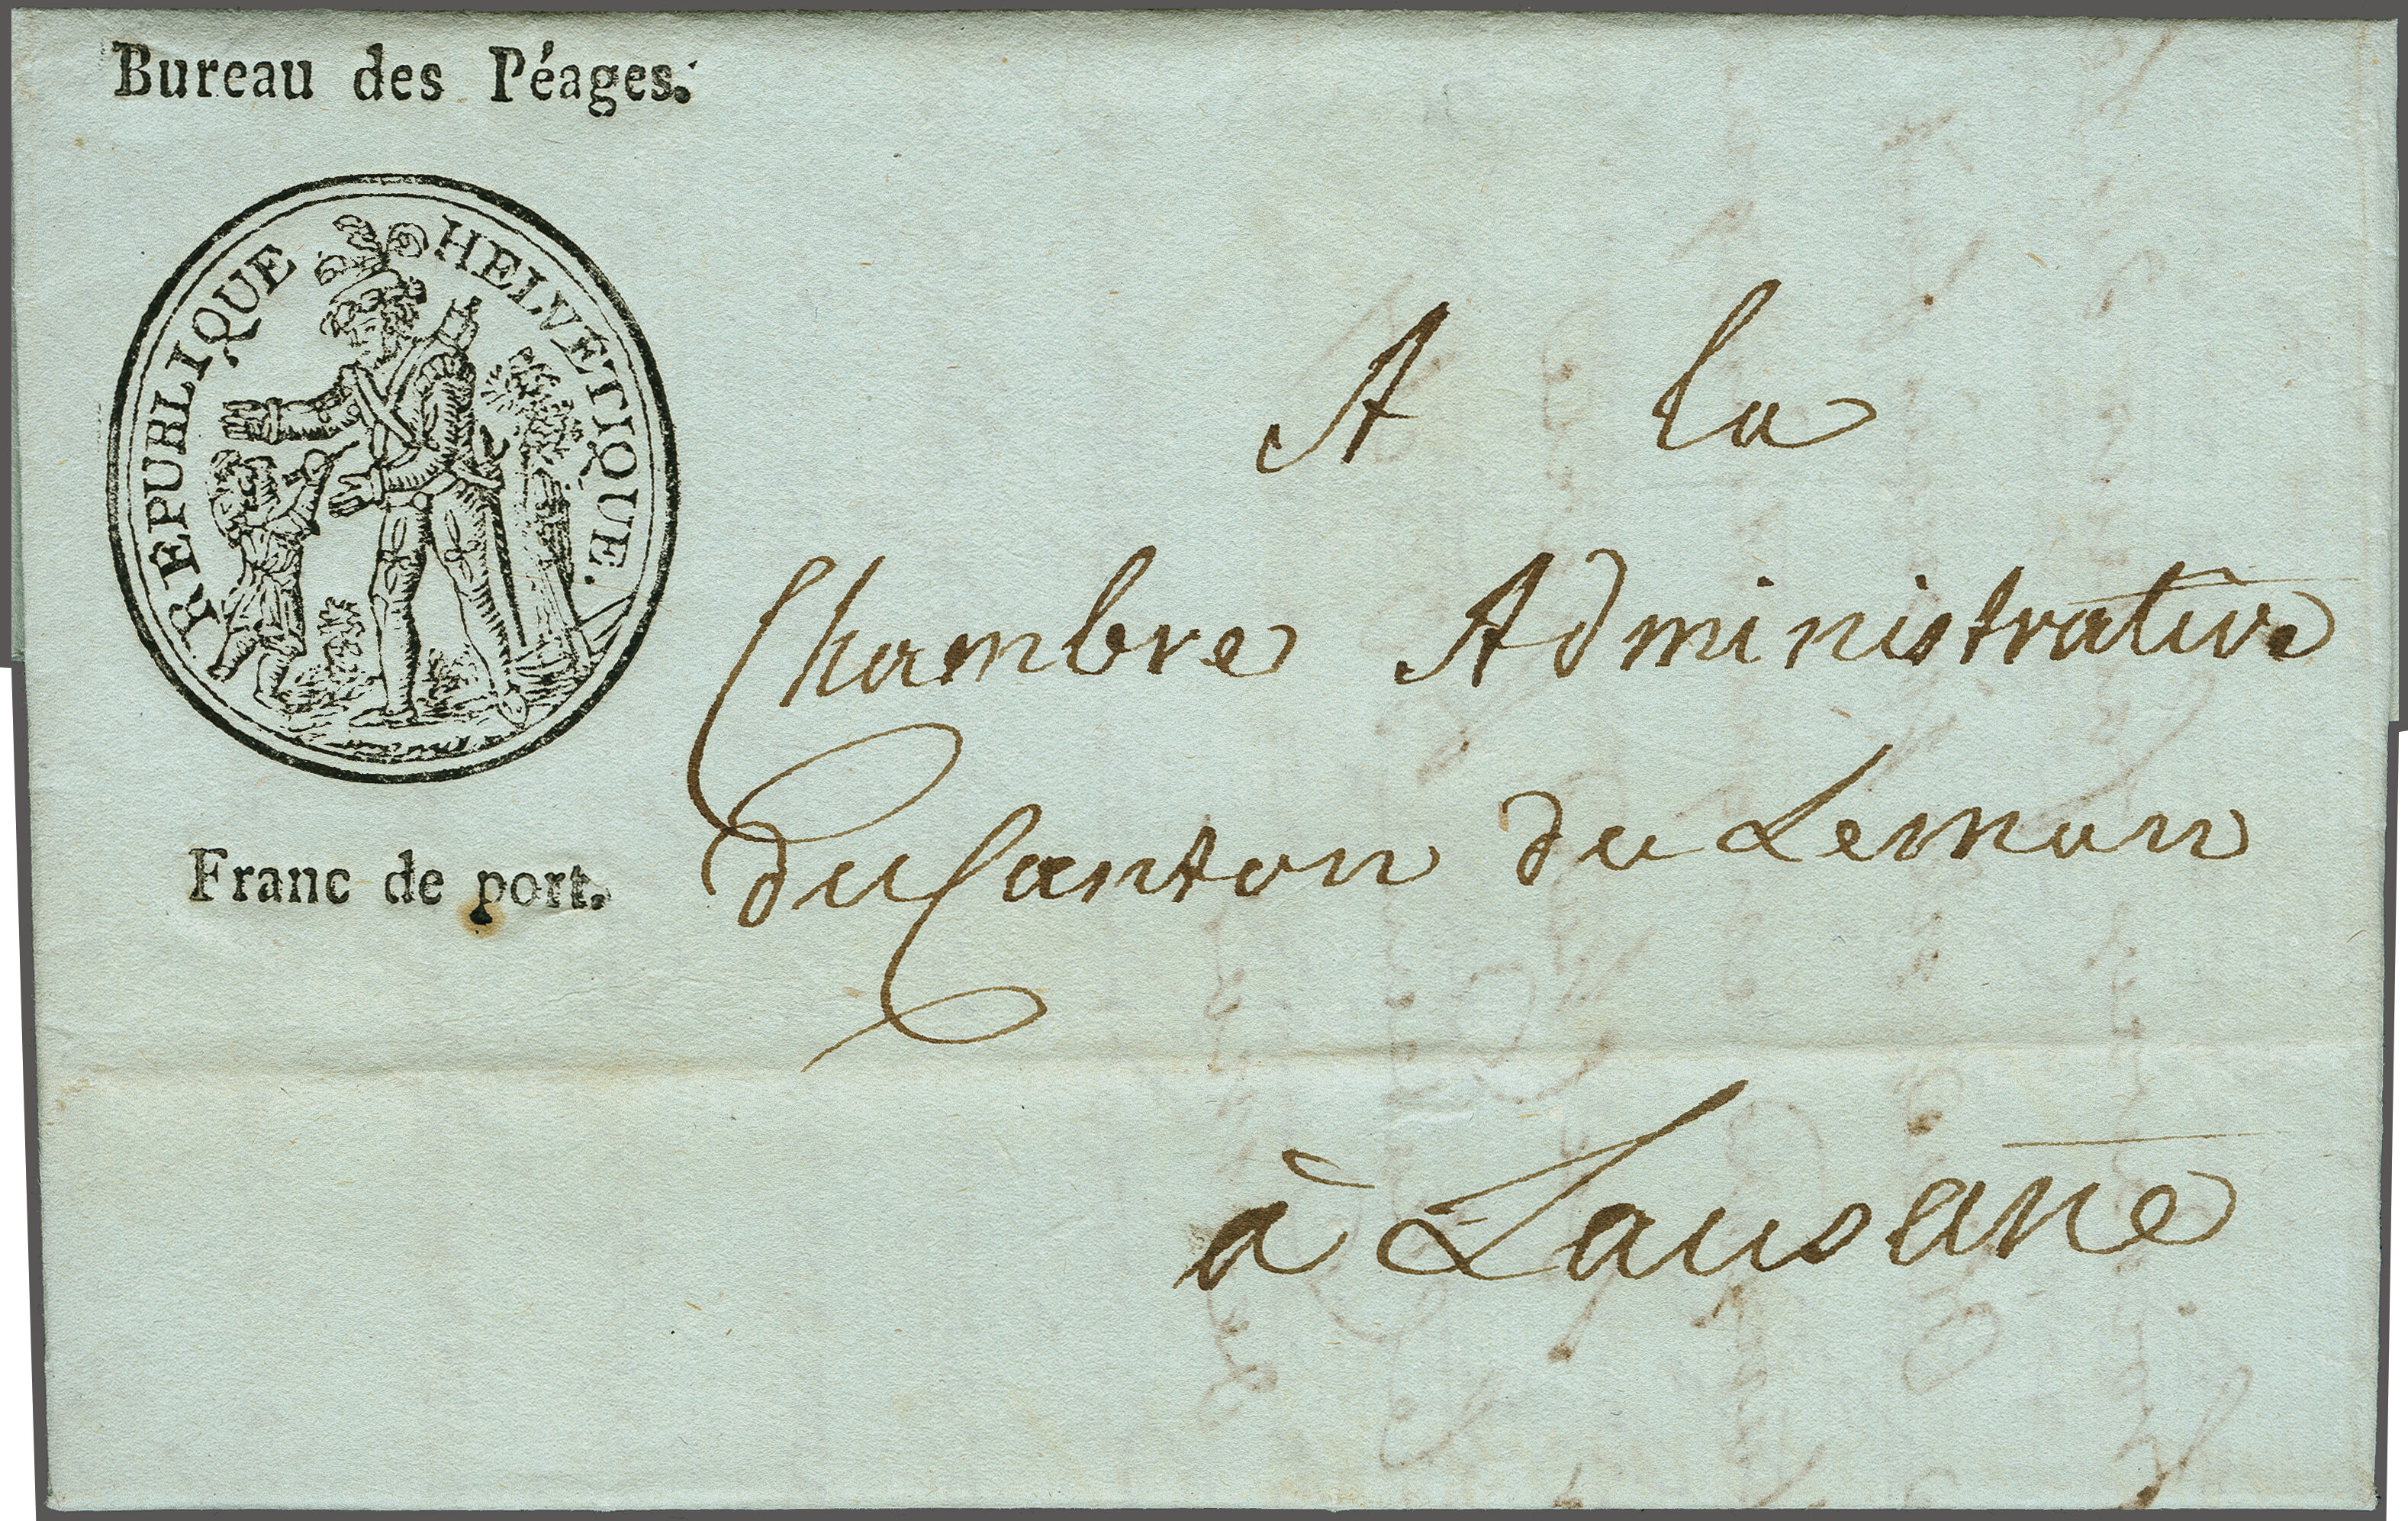 Bureau des Péages.
REPUBLIQUE HELVETIQUE.
Franc de port.
A la
Chambre Administrative
du Canton du Leman
à Lausane